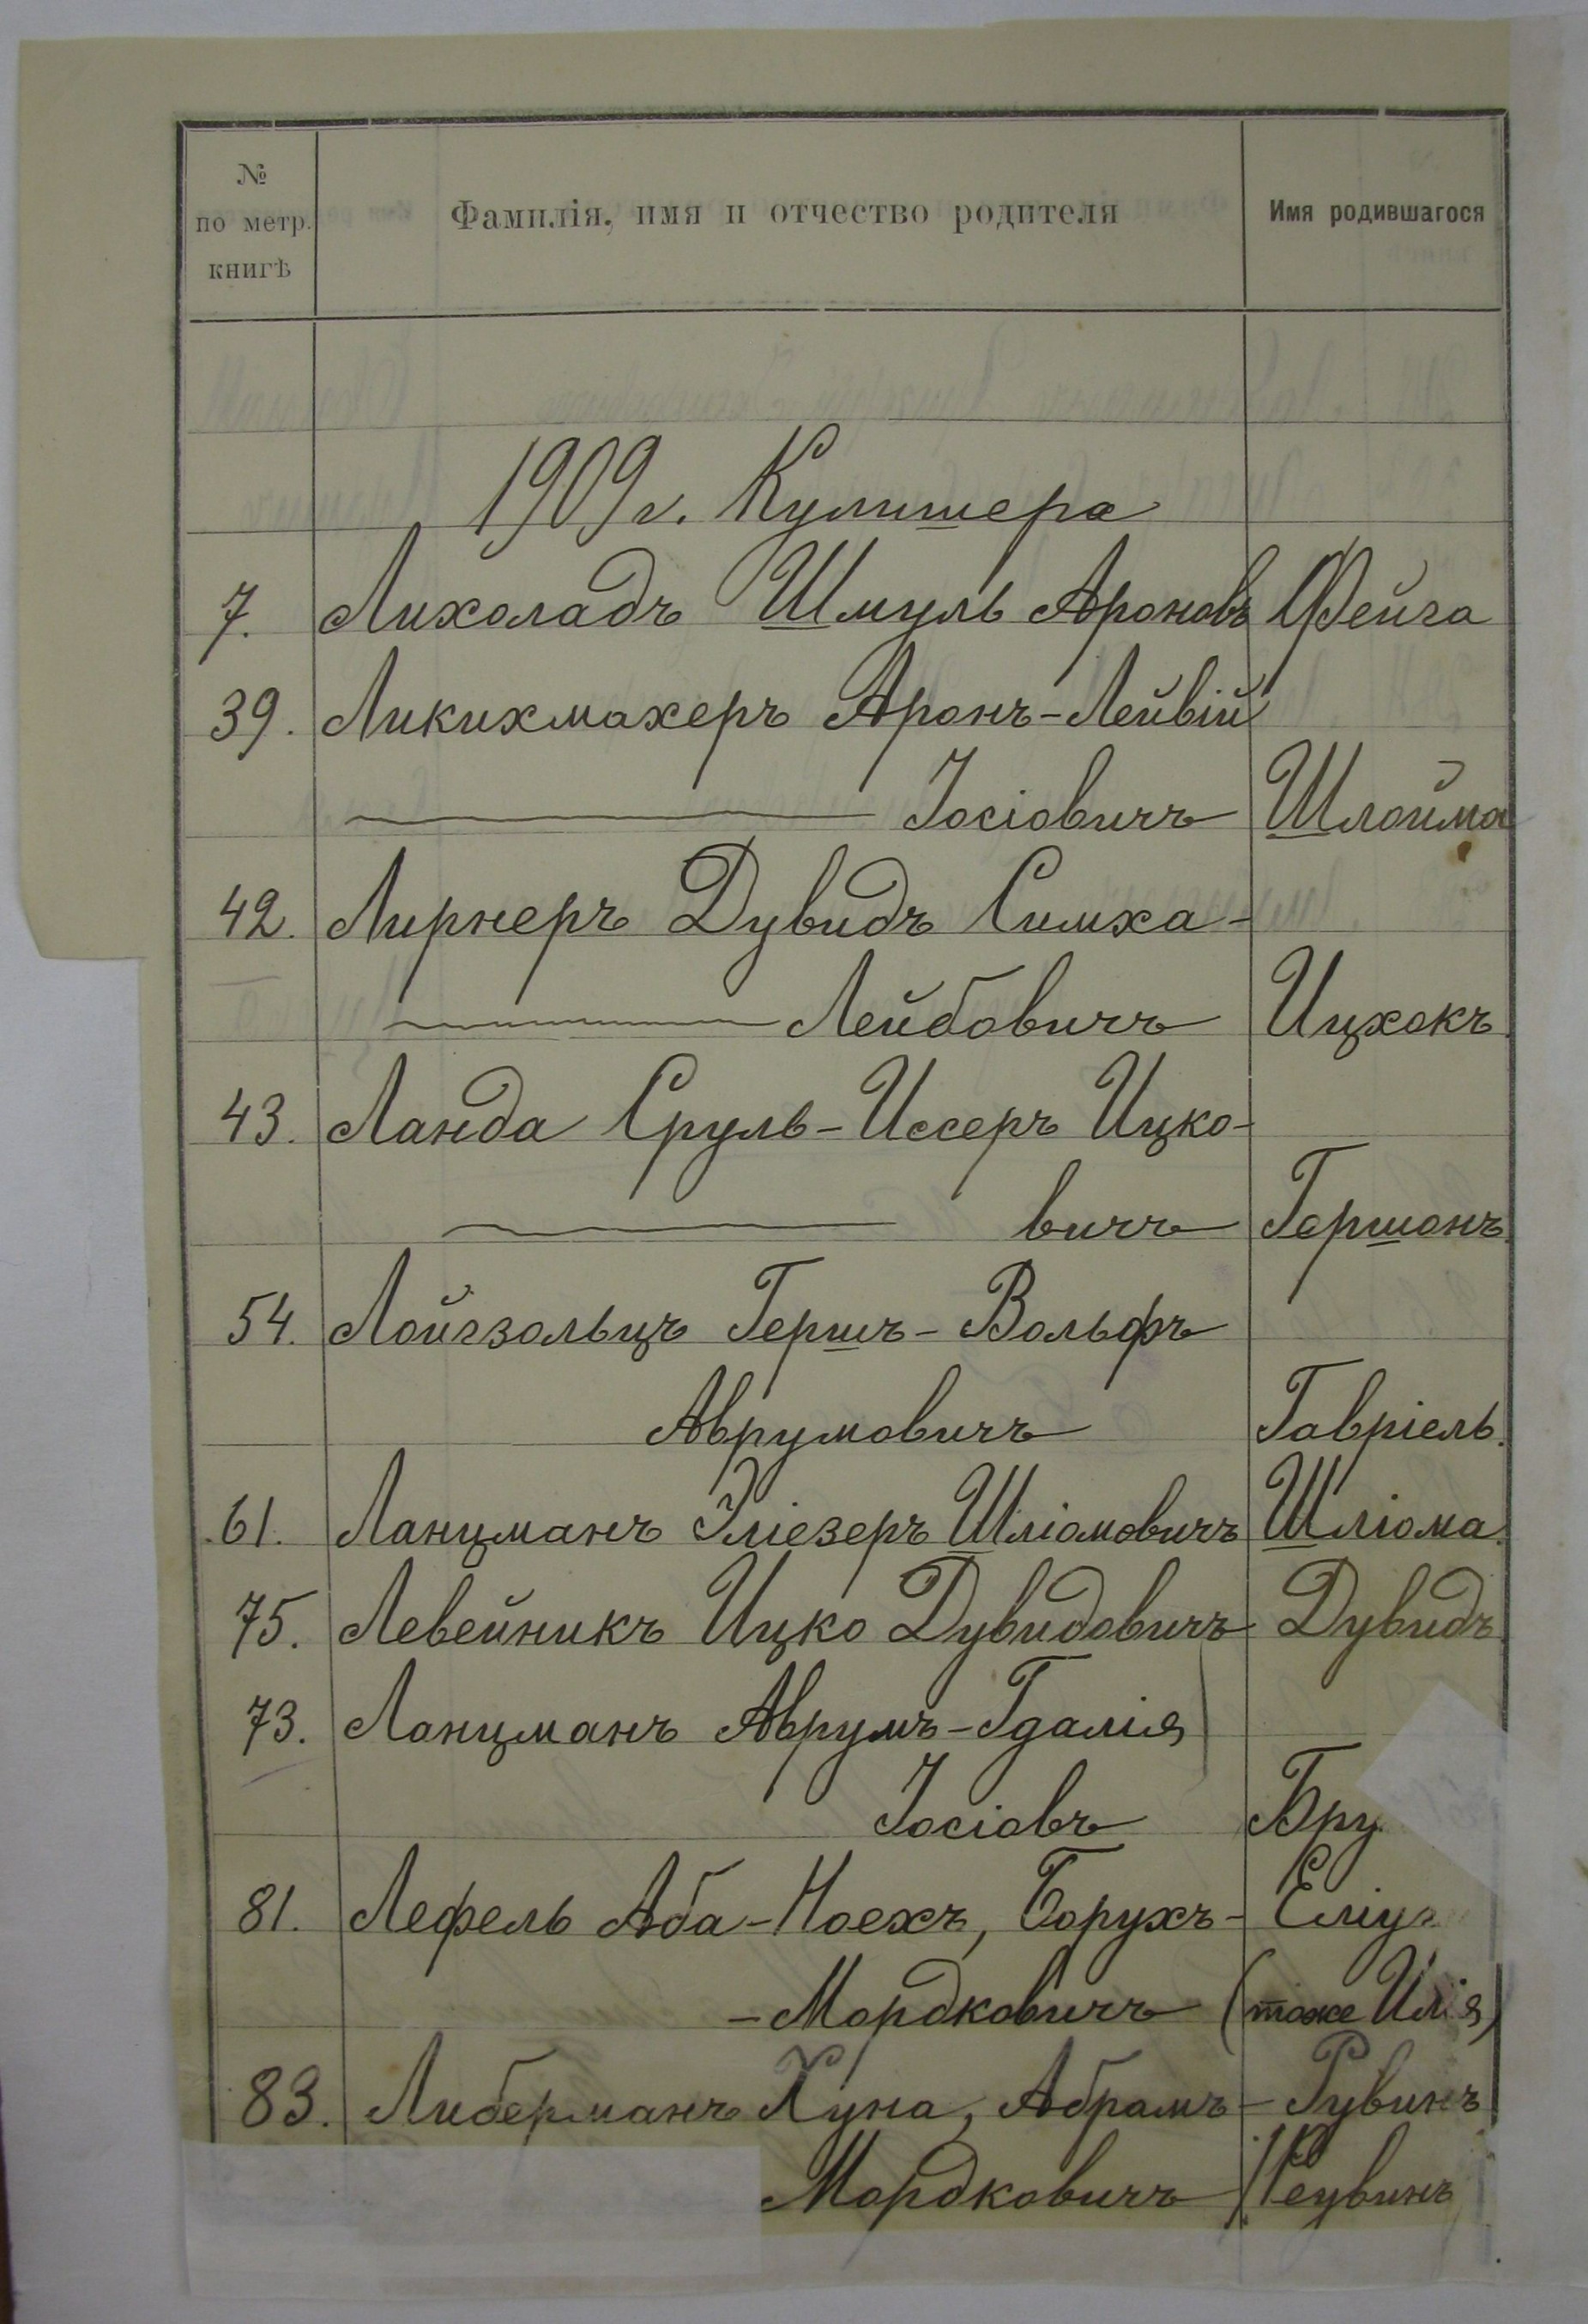 №
по метр.
книгѣ
Фамилія, имя и отчество родителя
Имя родившагося
1909 г. Кулишера
7. Лихоладъ Шмуль Ароновъ Фейга
39. Ликихмахеръ Аронъ-Лейвій
Іосіовичъ Шлойма
42. Лирнеръ Дувидъ Симха-
Лейбовичъ Ицхокъ
43. Ланда Сруль-Иссеръ Ицко-
вичъ Гершонъ
54. Лойгзольцъ Гершъ-Вольфъ
Аврумовичъ Гавріель.
61. Ланцманъ Эліезеръ Шліомовичъ Шліома.
75. Левейникъ Ицко Дувидовичъ Дувидъ
73. Ланцманъ Аврумъ-Гдалія
Іосіовъ Бру
81. Лефель Аба-Ноехъ, Борухъ- Еліуг
-Мордковичъ (тоже Илія)
83. Либерманъ Хуна, Абрамъ- Рувинъ
Мордковичъ / Реувинъ